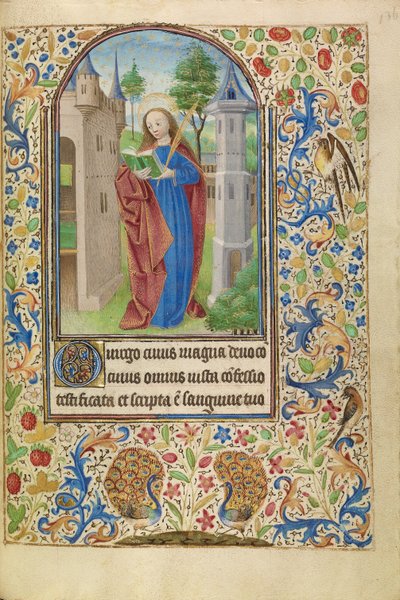 O uirgo cuius magna deuoco
cuius omnis iusta cōfessio
testificata et scripta ē sanguine tuo